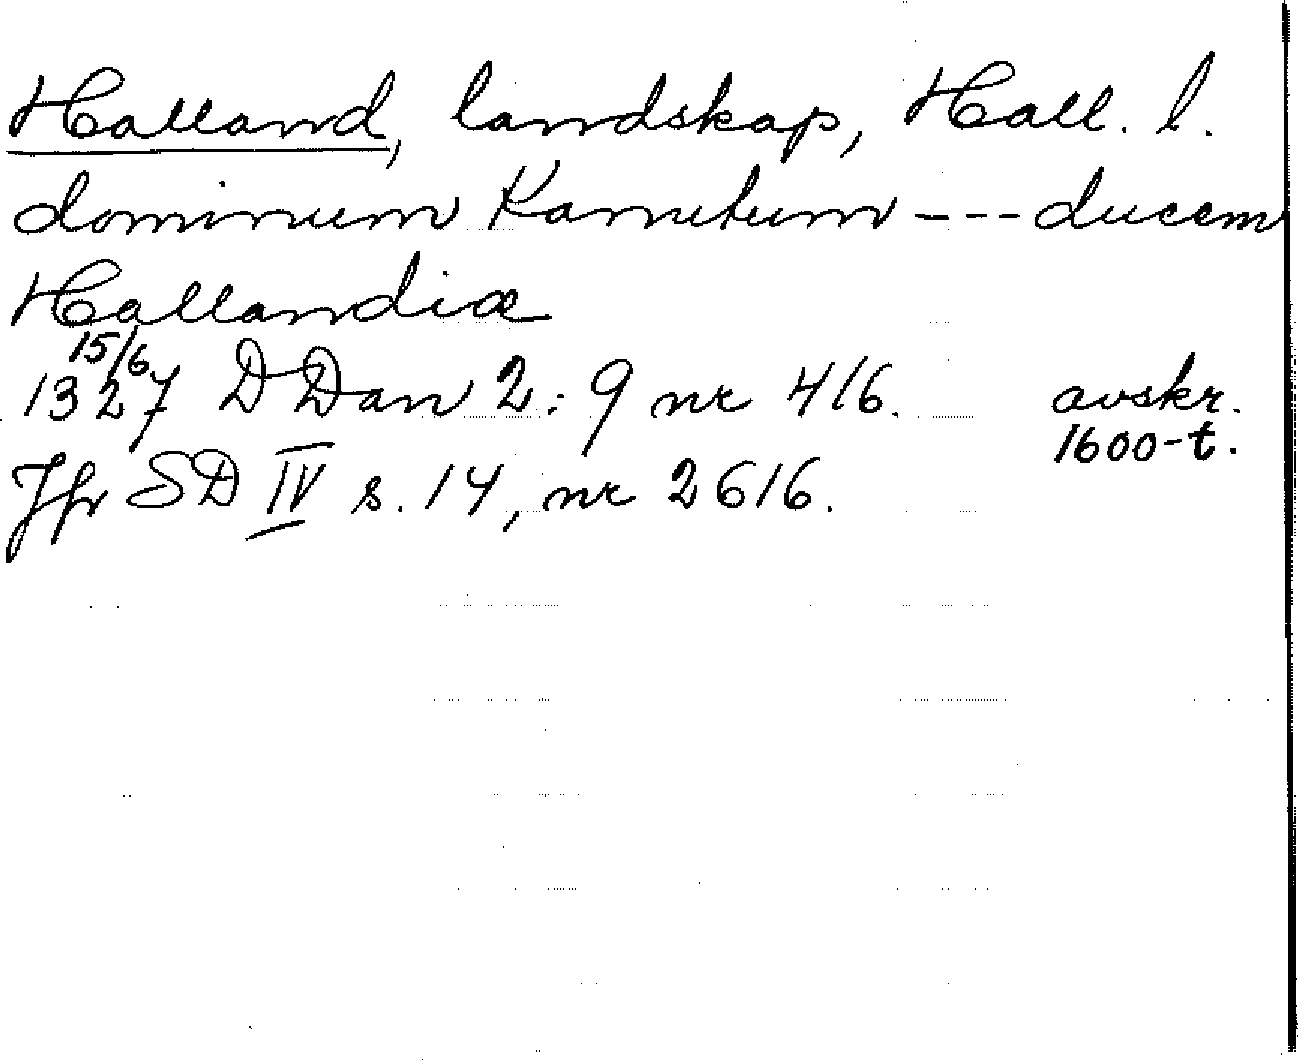 Halland, landskap, Hall. l.
dominum Kanutum --- ducem
Hallandiæ
15/6
1327 DDan 2:9 nr 416. avskr.
1600-t.
Jfr SD IV s. 14, nr 2616.